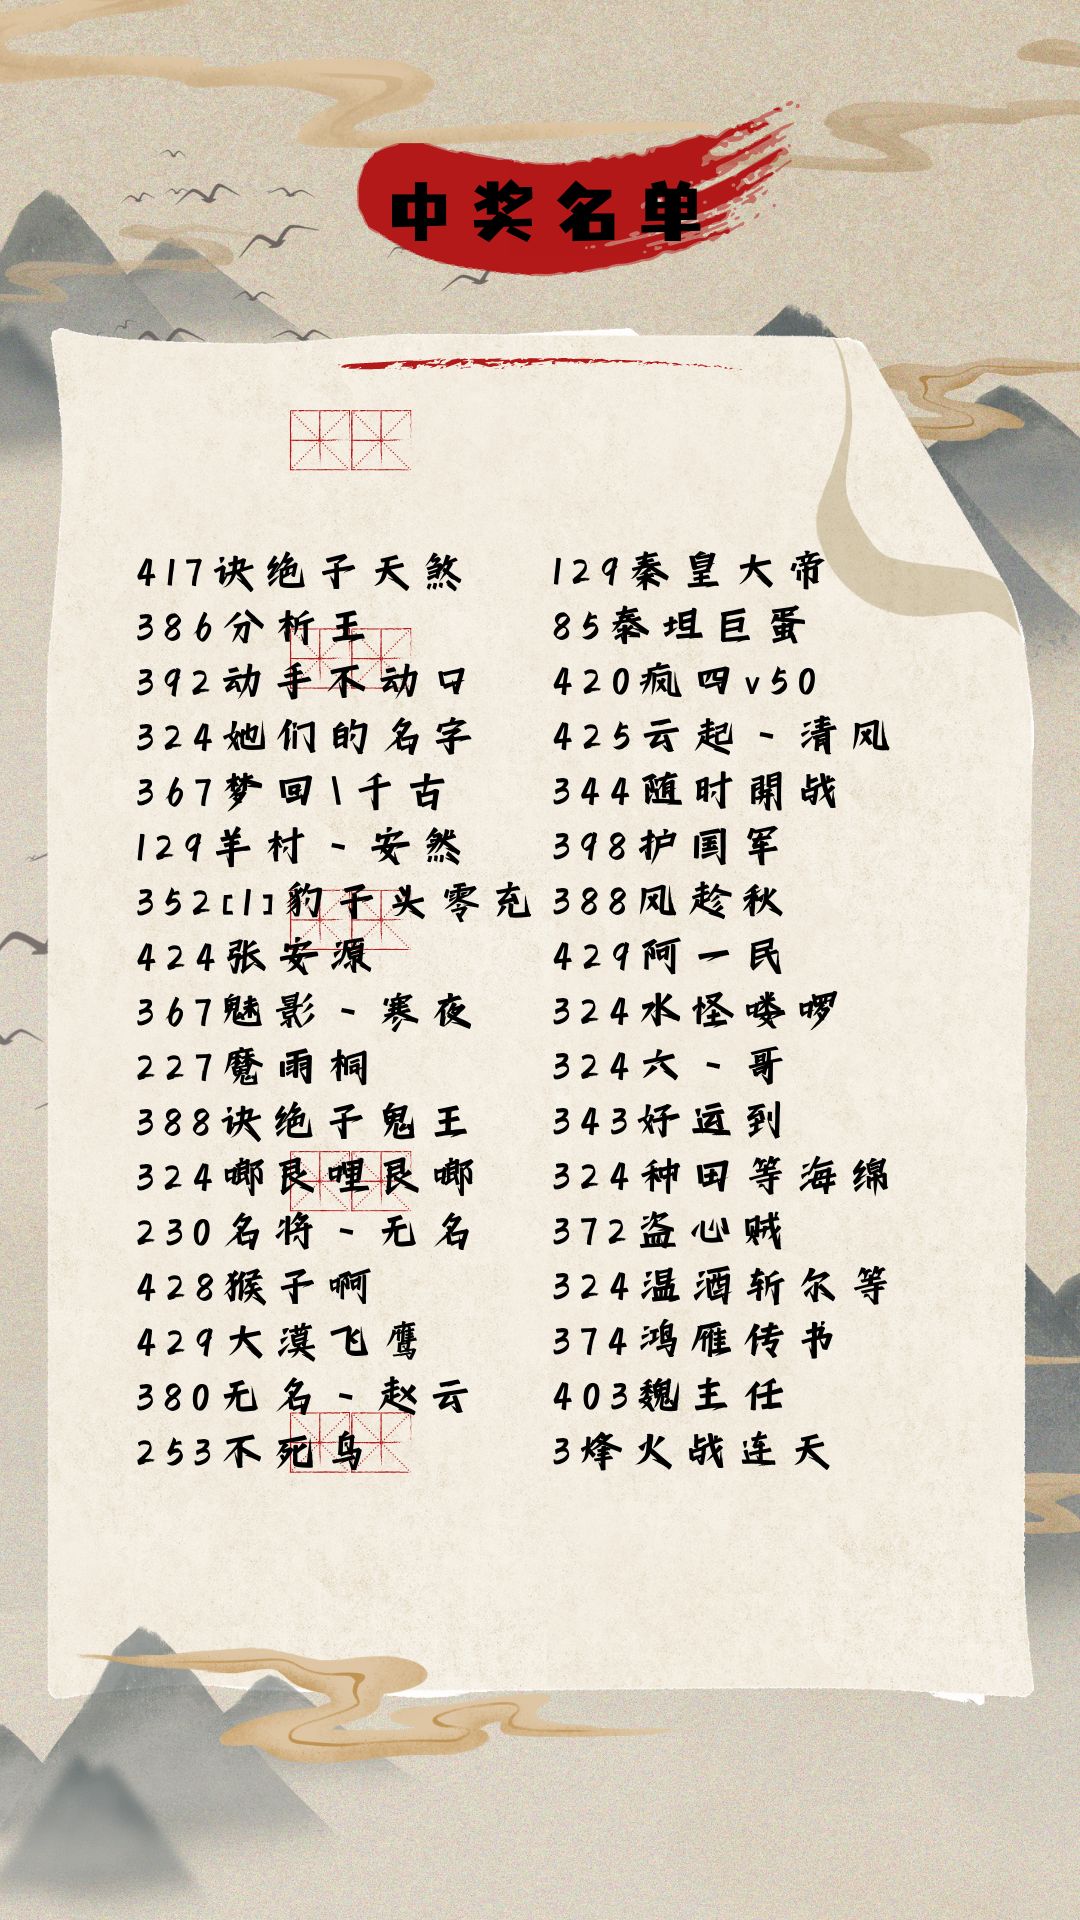 中奖名单
417诀绝子天煞
386分析王
392动手不动口
324她们的名字
367梦回\千古
129羊村-安然
352[1]豹子头零充
424张安源
367魅影-寒夜
227魔雨桐
388诀绝子鬼王
324啷艮哩艮啷
230名将-无名
428猴子啊
429大漠飞鹰
380无名-赵云
253不死鸟
129秦皇大帝
85秦坦巨蛋
420疯四v50
425云起-清风
344随时開战
398护国军
388风趁秋
429阿一民
324水怪喽啰
324六-哥
343好运到
324种田等海绵
372盗心贼
324温酒斩尔等
374鸿雁传书
403魏主任
3烽火战连天